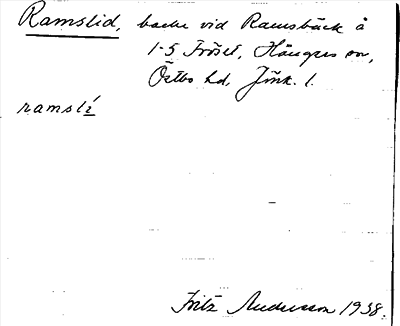 Ramslid, backe vid Ramsbäck å
1-5 Fröset, Hångers sn,
Östbo hd, Jönk. l.
ramslí
Fritz Andersson 1938.